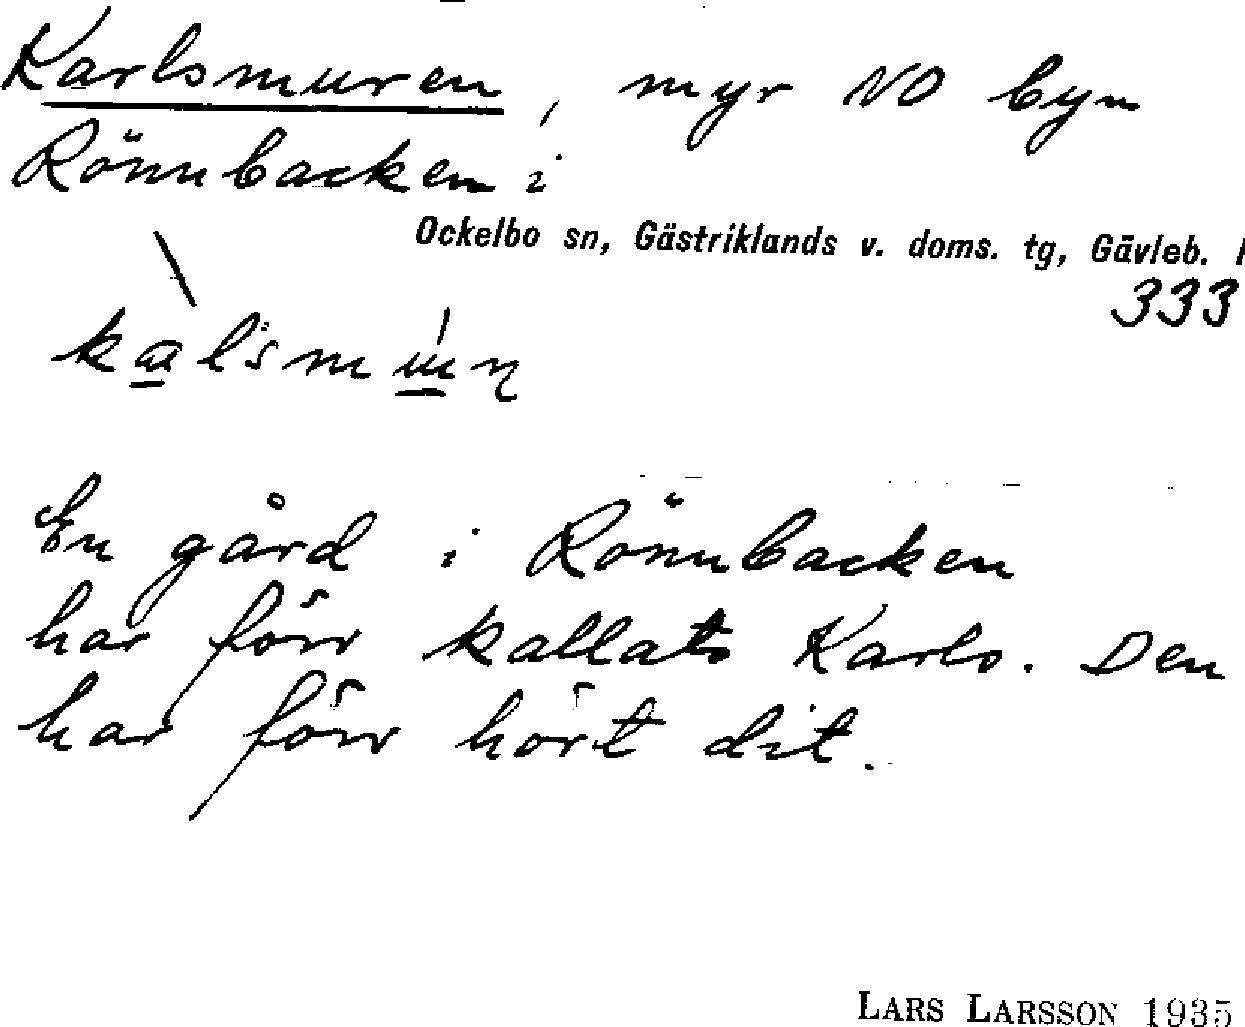 Karlsmuren, myr NO byn
Rönnbacken i
Ockelbo sn, Gästriklands v. doms. tg, Gävleb.
333
En gård i Rönnbacken
har förr kallats Karls. Den
har förr hört dit.
LARS LARSSON 1935